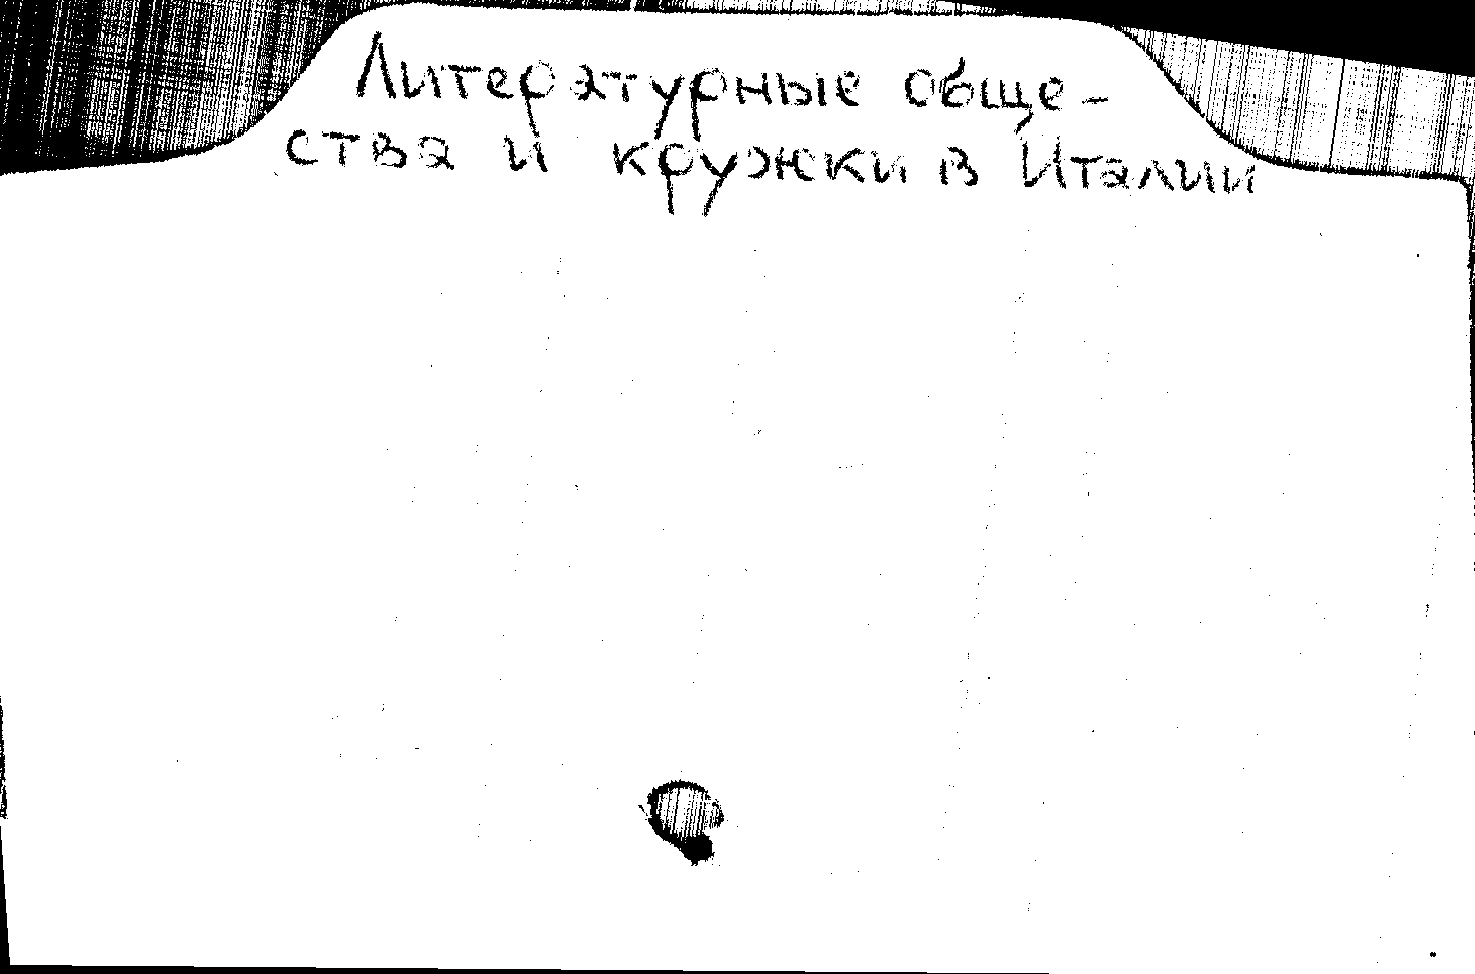 Литературные обще-
ства и кружки в Италии